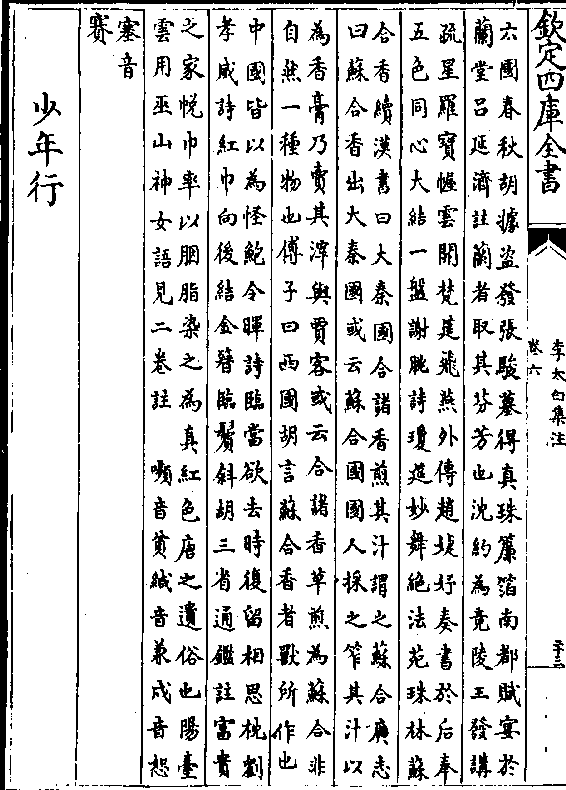 欽定四庫全書
李太白集注
卷六
二十三
六國春秋胡據盜發張駿墓得真珠簾箔南都賦宴於
蘭堂呂延濟註蘭者取其芬芳也沈約為竟陵王發講
疏星羅寶幄雲開梵筵飛燕外傳趙婕妤奏書於后奉
五色同心大結一盤謝朓詩瓊筵妙舞絶法苑珠林蘇
合香續漢書曰大秦國合諸香煎其汁謂之蘇合廣志
曰蘇合香出大秦國或云蘇合國國人採之笮其汁以
為香膏乃賣其滓與賈客或云合諸香草煎為蘇合非
自然一種物也傅子曰西國胡言蘇合香者獸所作也
中國皆以為怪鮑令暉詩臨當欲去時復留相思枕劉
孝威詩紅巾向後結金簪臨鬢斜胡三省通鑑註富貴
之家帨巾率以胭脂染之為真紅色唐之遺俗也陽臺
雲用巫山神女語見二卷註　嚬音貧緘音兼成音恕
塞音
賽
少年行